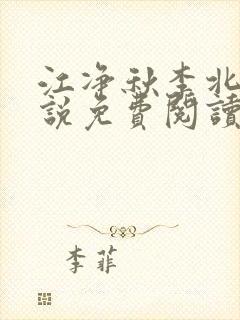 江净秋李北
說免費閱讀
李菲